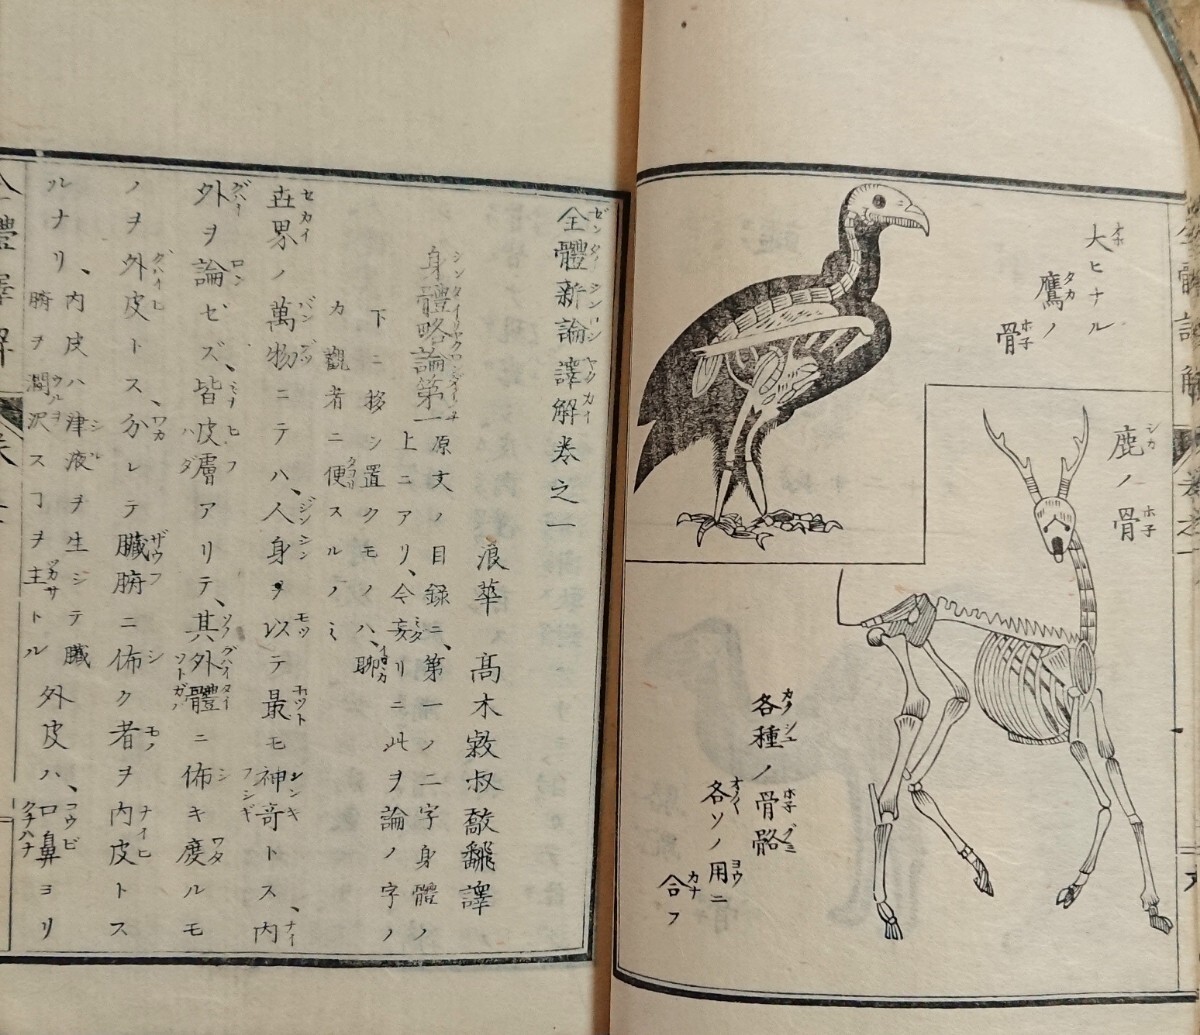 大ヒナル
鷹ノ
骨
鹿ノ骨
各種ノ骨骼
各ソノ用ニ
合フ
全體新論譯解巻之一
浪華 高木 叔 飜譯
身體略論第一
原文ノ目録ニ、第一ノ二字身體ノ
上ニアリ、今妄リニ此ヲ論ノ字ノ
下ニ移シ置クモノハ、聊
カ觀者ニ便スルノミ
世界ノ萬物ニテハ、人身ヲ以テ最モ神奇トス、内
外ヲ論ゼズ、皆皮膚アリテ、其外體ニ佈キ度ルモ
ノヲ外皮トス、分レテ臓腑ニ佈ク者ヲ内皮トス
、内皮ハ津液ヲ生シテ臓
腑ヲ潤沢スヿヲ主トル
ルナリ
外皮ハ、口鼻ヨリ